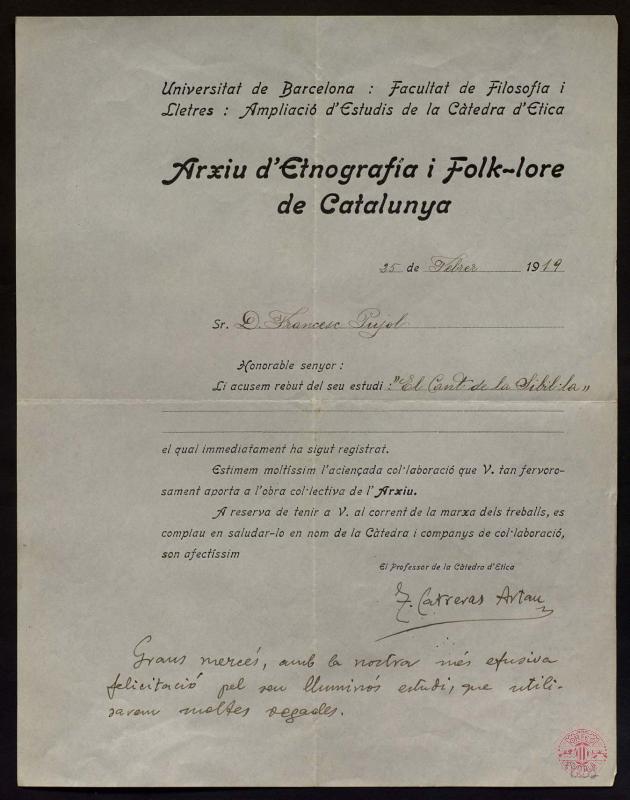 Universitat de Barcelona : Facultat de Filosofía i
Lletres : Ampliació d'Estudis de la Càtedra d'Etica
Arxiu d'Etnografía i Folk-lore
de Catalunya
25 de Febrer 1919
Sr. D. Francesc Pujol
Honorable senyor :
Li acusem rebut del seu estudi : "El Cant de la Sibil·la"
el qual immediatament ha sigut registrat.
Estimem moltíssim l'aciençada col·laboració que V. tan fervoro-
sament aporta a l'obra col·lectiva de l'Arxiu.
A reserva de tenir a V. al corrent de la marxa dels treballs, es
complau en saludar-lo en nom de la Càtedra i companys de col·laboració,
son afectíssim
El Professor de la Càtedra d'Etica
T. Carreras Artau
Grans mercés, amb la nostra més efusiva
felicitació pel seu lluminós estudi, que utili-
sarem moltes vegades.